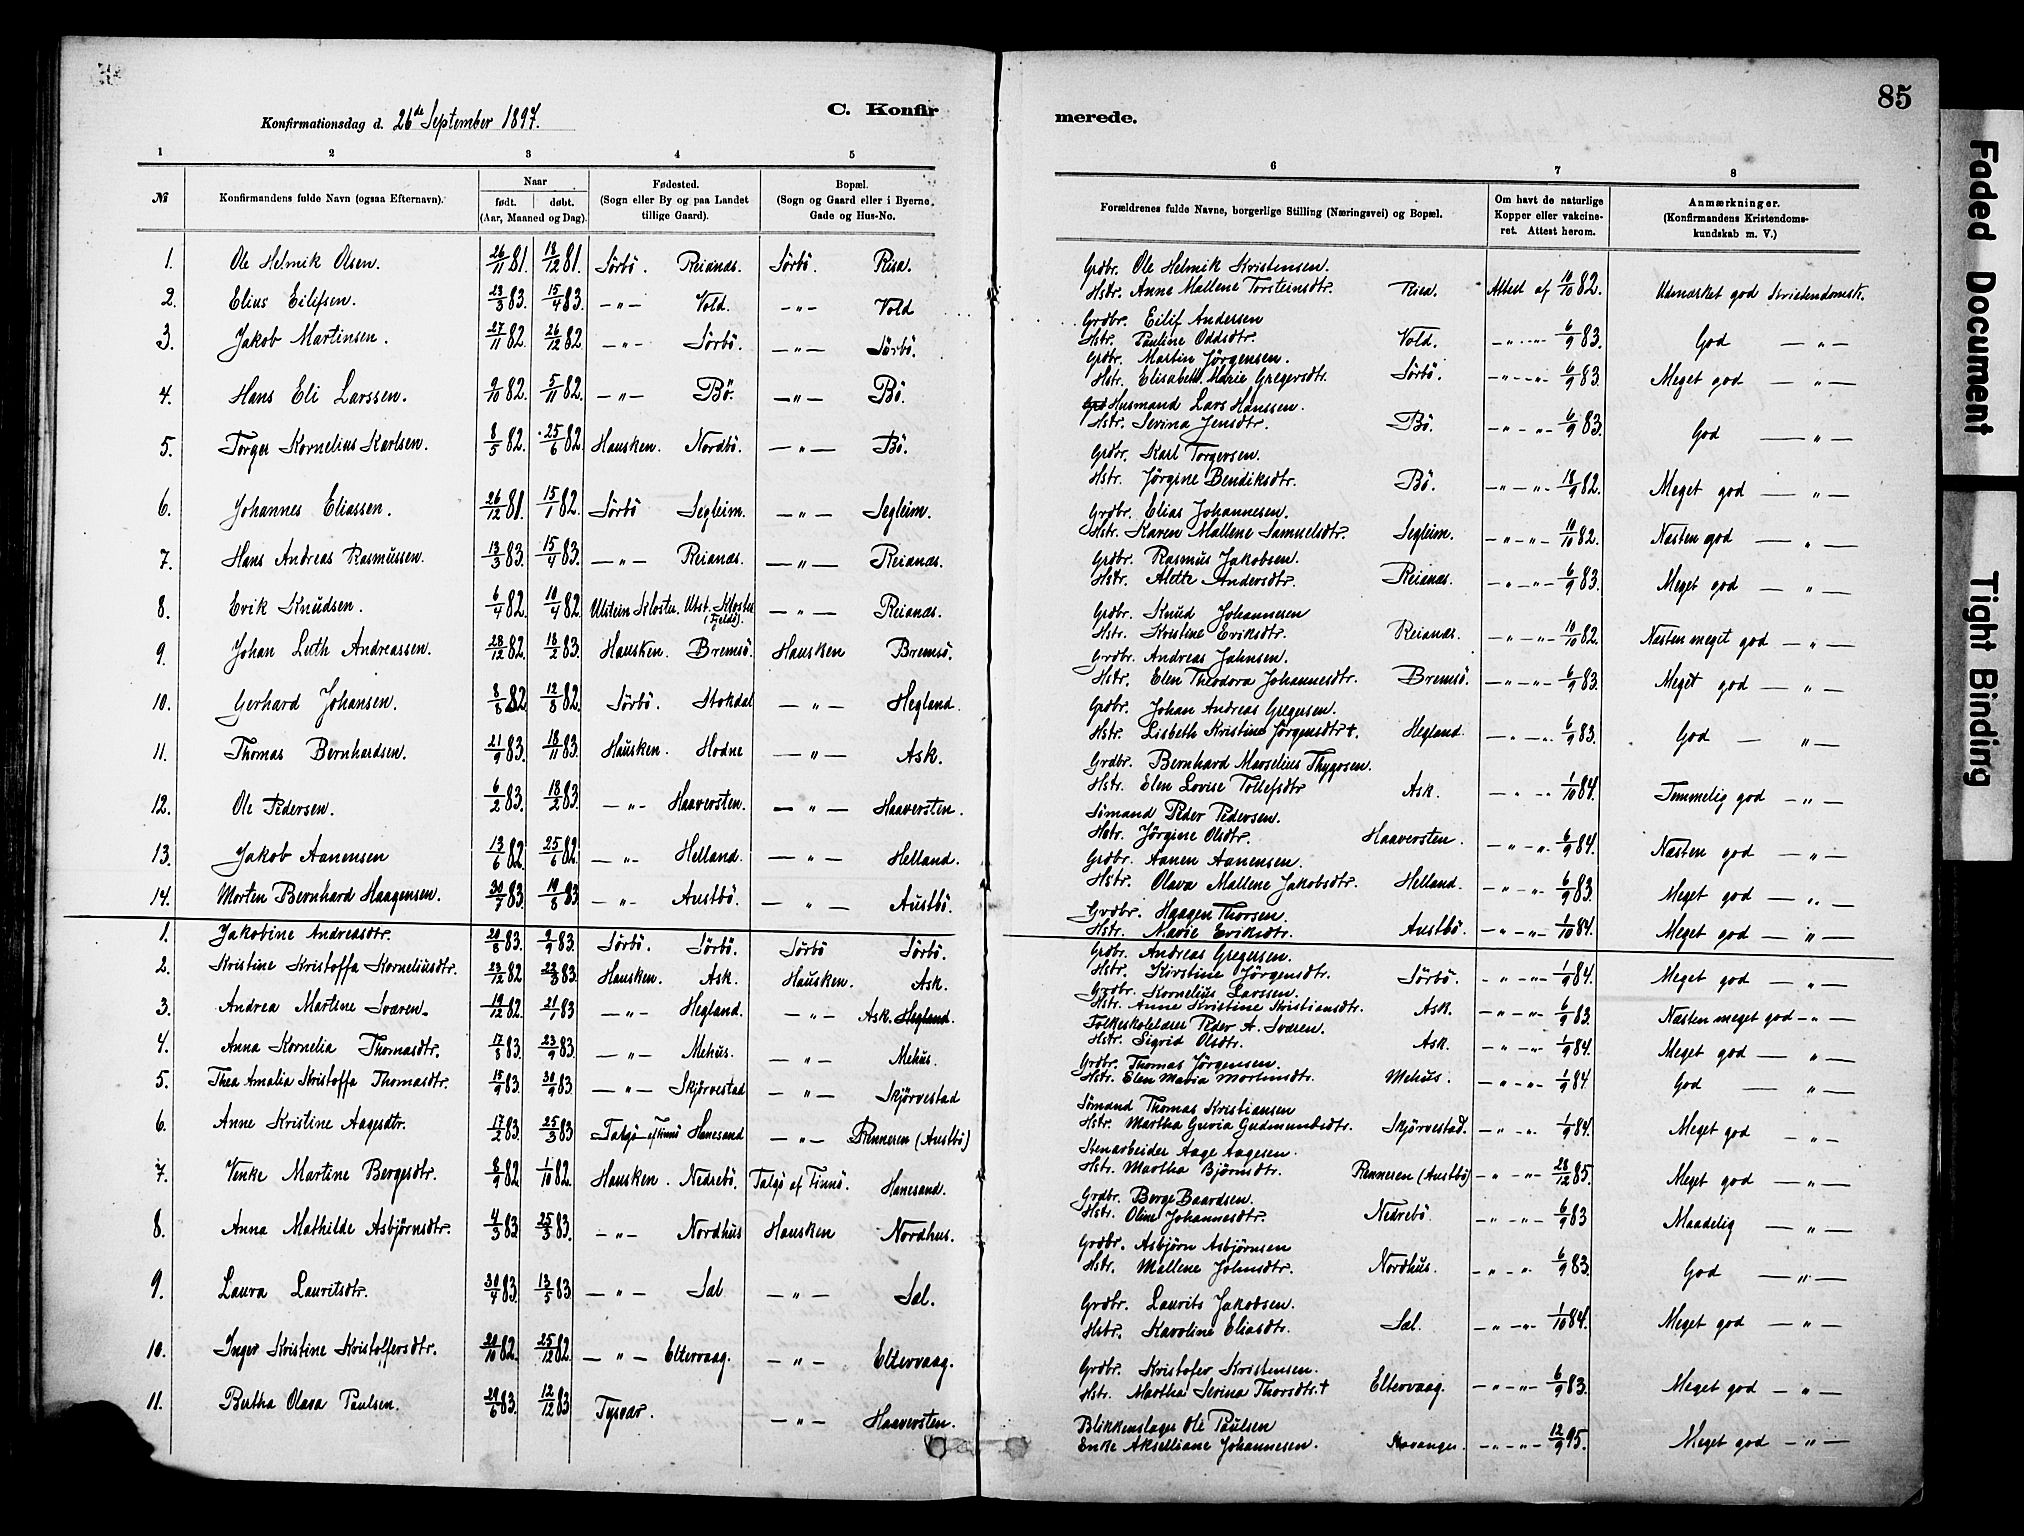 85
Konfirmationsdag d. 26de September 1897.
C. Konfir
merede.
1 2 3 4 5 6 7 8
№
Konfirmandens fulde Navn (ogsaa Efternavn).
Naar
født. døbt.
(Aar, Maaned og Dag).
Fødested.
(Sogn eller By og paa Landet
tillige Gaard).
Bopæl.
(Sogn og Gaard eller i Byerne
Gade og Hus-No.
Forældrenes fulde Navne, borgerlige Stilling (Næringsvei) og Bopæl.
Om havt de naturlige
Kopper eller vakcine-
ret. Attest herom.
Anmærkninger.
(Konfirmandens Kristendoms-
kundskab m. V.)
1. Ole Helmik Olsen. 26/11 81. 18/12 81. Sörbö. Reianæs. Sörbö. Risa. Grdbr. Ole Helmik Kristensen.
Hstr. Anne Mallene Torsteinsdtr. Risa. Attest af 10/10 82. Udmærket god Kristendomsk.
2. Elius Eilifsen. 23/3 83. 15/4 83. —"— Vold. —"— Vold Grdbr. Eilif Andersen
Hstr. Pauline Oddsdtr. Vold. —"—"— 6/9 83. God —"—
3. Jakob Martinsen. 27/11 82. 26/12 82 —"— Sörbö. —"— Sörbö. Grdbr. Martin Jörgensen.
Hstr. Elisabeth Marie Gregersdtr. Sörbö. —"—"— 6/9 83. Meget god —"—
4. Hans Eli Larssen. 9/10 82. 5/11 82. —"— Bö. —"— Bö. Husmand Lars Hanssen.
Hstr. Serina Jensdtr. Bö. —"—"— 6/9 83. God —"—
5. Torger Kornelius Karlsen. 8/5 82. 25/6 82. Hausken. Nordbö. —"— Bö. Grdbr. Karl Torgersen.
Hstr. Jörgine Bendiksdtr. Bö. —"—"— 18/9 82. Meget god —"—
6. Johannes Eliassen. 26/12 81. 15/1 82. Sörbö Segleim. —"— Segleim. Grdbr. Elias Johannesen.
Hstr. Karen Mallene Samuelsdtr. Segleim. —"—"— 10/10 82. Næsten god —"—
7. Hans Andreas Rasmussen. 13/3 83. 15/4 83. —"— Reianæs. —"— Reianæs. Grdbr. Rasmus Jakobsen.
Hstr. Alette Andersdtr. Reianæs. —"—"— 6/9 83. Meget god —"—
8. Erik Knudsen. 6/4 82. 10/4 82. Utstein Kloster. Utst. Kloster (Fjeld). —"— Reianæs. Grdbr. Knud Johannesen
Hstr. Kristine Eriksdtr. Reianæs. —"—"— 10/10 82. Næsten meget god —"—
9. Johan Luth Andreassen. 28/12 82. 18/2 83. Hausken. Bremsö. Hausken Bremsö. Grdbr. Andreas Jahnsen.
Hstr. Elen Theodora Johannesdtr. Bremsö. —"—"— 6/9 83. Meget god —"—
10. Gerhard Johansen. 8/8 82 12/8 82. Sörbö. Stokdal —"— Hegland. Grdbr. Johan Andreas Gregersen.
Hstr. Lisbeth Kristine Jörgensdtr †. Hegland. —"—"— 6/9 83. God —"—
11. Thomas Bernhardsen. 21/9 83. 18/11 83. Hausken. Hodne —"— Ask. Grdbr. Bernhard Marselius Thygesen.
Hstr. Elen Lovise Tollefsdtr Ask. —"—"— 1/10 84. Temmelig god —"—
12. Ole Pedersen. 6/2 83. 18/2 83. —"— Haaversten. —"— Haaversten. Sömand Peder Pedersen.
Hstr. Jörgine Olsdtr. Haaversten. —"—"— 6/9 84. Næsten god —"—
13. Jakob Aanensen 13/6 82. 25/6 82. —"— Helland. —"— Helland. Grdbr. Aanen Aanensen.
Hstr. Olava Mallene Jakobsdtr. Helland. —"—"— 6/9 83. Meget god —"—
14. Morten Bernhard Haagensen. 30/7 83. 19/8 83 —"— Austbö. —"— Austbö. Grdbr. Haagen Thorsen.
Hstr. Marie Eriksdtr. Austbö. —"—"— 1/10 84. Meget god —"—
1. Jakobine Andreasdtr. 20/8 83. 9/9 83. Sörbö. Sörbö. Sörbö Sörbö. Grdbr. Andreas Gregersen.
Hstr. Kirstine Jörgensdtr. Sörbö. —"—"— 1/9 84. Meget god —"—
2. Kristine Kristoffa Korneliusdtr. 23/12 82 22/3 83. Hausken. Ask. Hausken. Ask. Grdbr. Kornelius Larssen.
Hstr. Anne Kristine Kristiansdtr. Ask. —"—"— 6/9 83. Næsten meget god —"—
3. Andrea Martine Sværen. 19/12 82. 21/1 83 —"— Hegland. —"— Ask. Hegland. Folkeskolelærer Peder A. Sværen.
Hstr. Sigrid Olsdtr. Ask. —"—"— 1/9 84. Meget god —"—
4. Anna Kornelia Thomasdtr. 17/8 83. 23/9 83. —"— Mehus. —"— Mehus. Grdbr. Thomas Jörgensen.
Hstr. Elen Maria Mortensdtr. Mehus. —"—"— 1/9 84 God —"—
5. Thea Amalia Kristoffa Thomasdtr. 15/9 83. 30/9 83. —"— Skjörvestad —"— Skjörvestad Sömand Thomas Kristiansen
Hstr. Martha Guria Gudmundsdtr. Skjörvestad. —"—"— 1/9 84. Meget god —"—
6. Anne Kristine Aagesdtr. 17/2 83. 25/3 83 Talgö af Finnö Hanesand —"— Renneren (Austbö) Stenarbeider Aage Aagesen.
Hstr. Martha Björnsdtr. Renneren (Austbö) —"—"— 28/12 85. Meget god —"—
7. Venke Martine Bergesdtr. 8/9 82 1/10 82. Hausken. Nedrebö. Talgö af Finnö. Hanesand. Grdbr. Berge Baardsen.
Hstr. Oline Johannesdtr. Nedrebö. —"—"— 6/9 83 Maadelig —"—
8. Anna Mathilde Asbjørnsdtr. 4/3 83 25/3 83. —"— Nordhus Hausken Nordhus. Grdbr. Asbjørn Asbjørnsen
Hstr. Mallene Johnsdtr. Nordhus. —"—"— 6/9 83. God —"—
9. Laura Lauritsdtr. 30/4 83. 13/5 83. —"— Sal —"— Sal. Grdbr. Laurits Jakobsen.
Hstr. Karoline Eliasdtr. Sal. —"—"— 1/10 84. Meget god —"—
10. Inger Kristine Kristoffersdtr. 20/10 82. 25/12 82. —"— Eltervaag. —"— Eltervaag. Grdbr. Kristofer Kristensen.
Hstr. Martha Serina Thorsdtr. † Eltervaag. —"—"— 6/9 83. Meget god —"—
11. Bertha Olava Paulsen. 29/6 83. 12/12 83 Tysvær. —"— Haaversten. Blikkenslager Ole Paulsen
Enke Akselliane Johannesen. Stavanger. —"—"— 12/9 95. Meget god —"—
Faded Document
Tight Binding